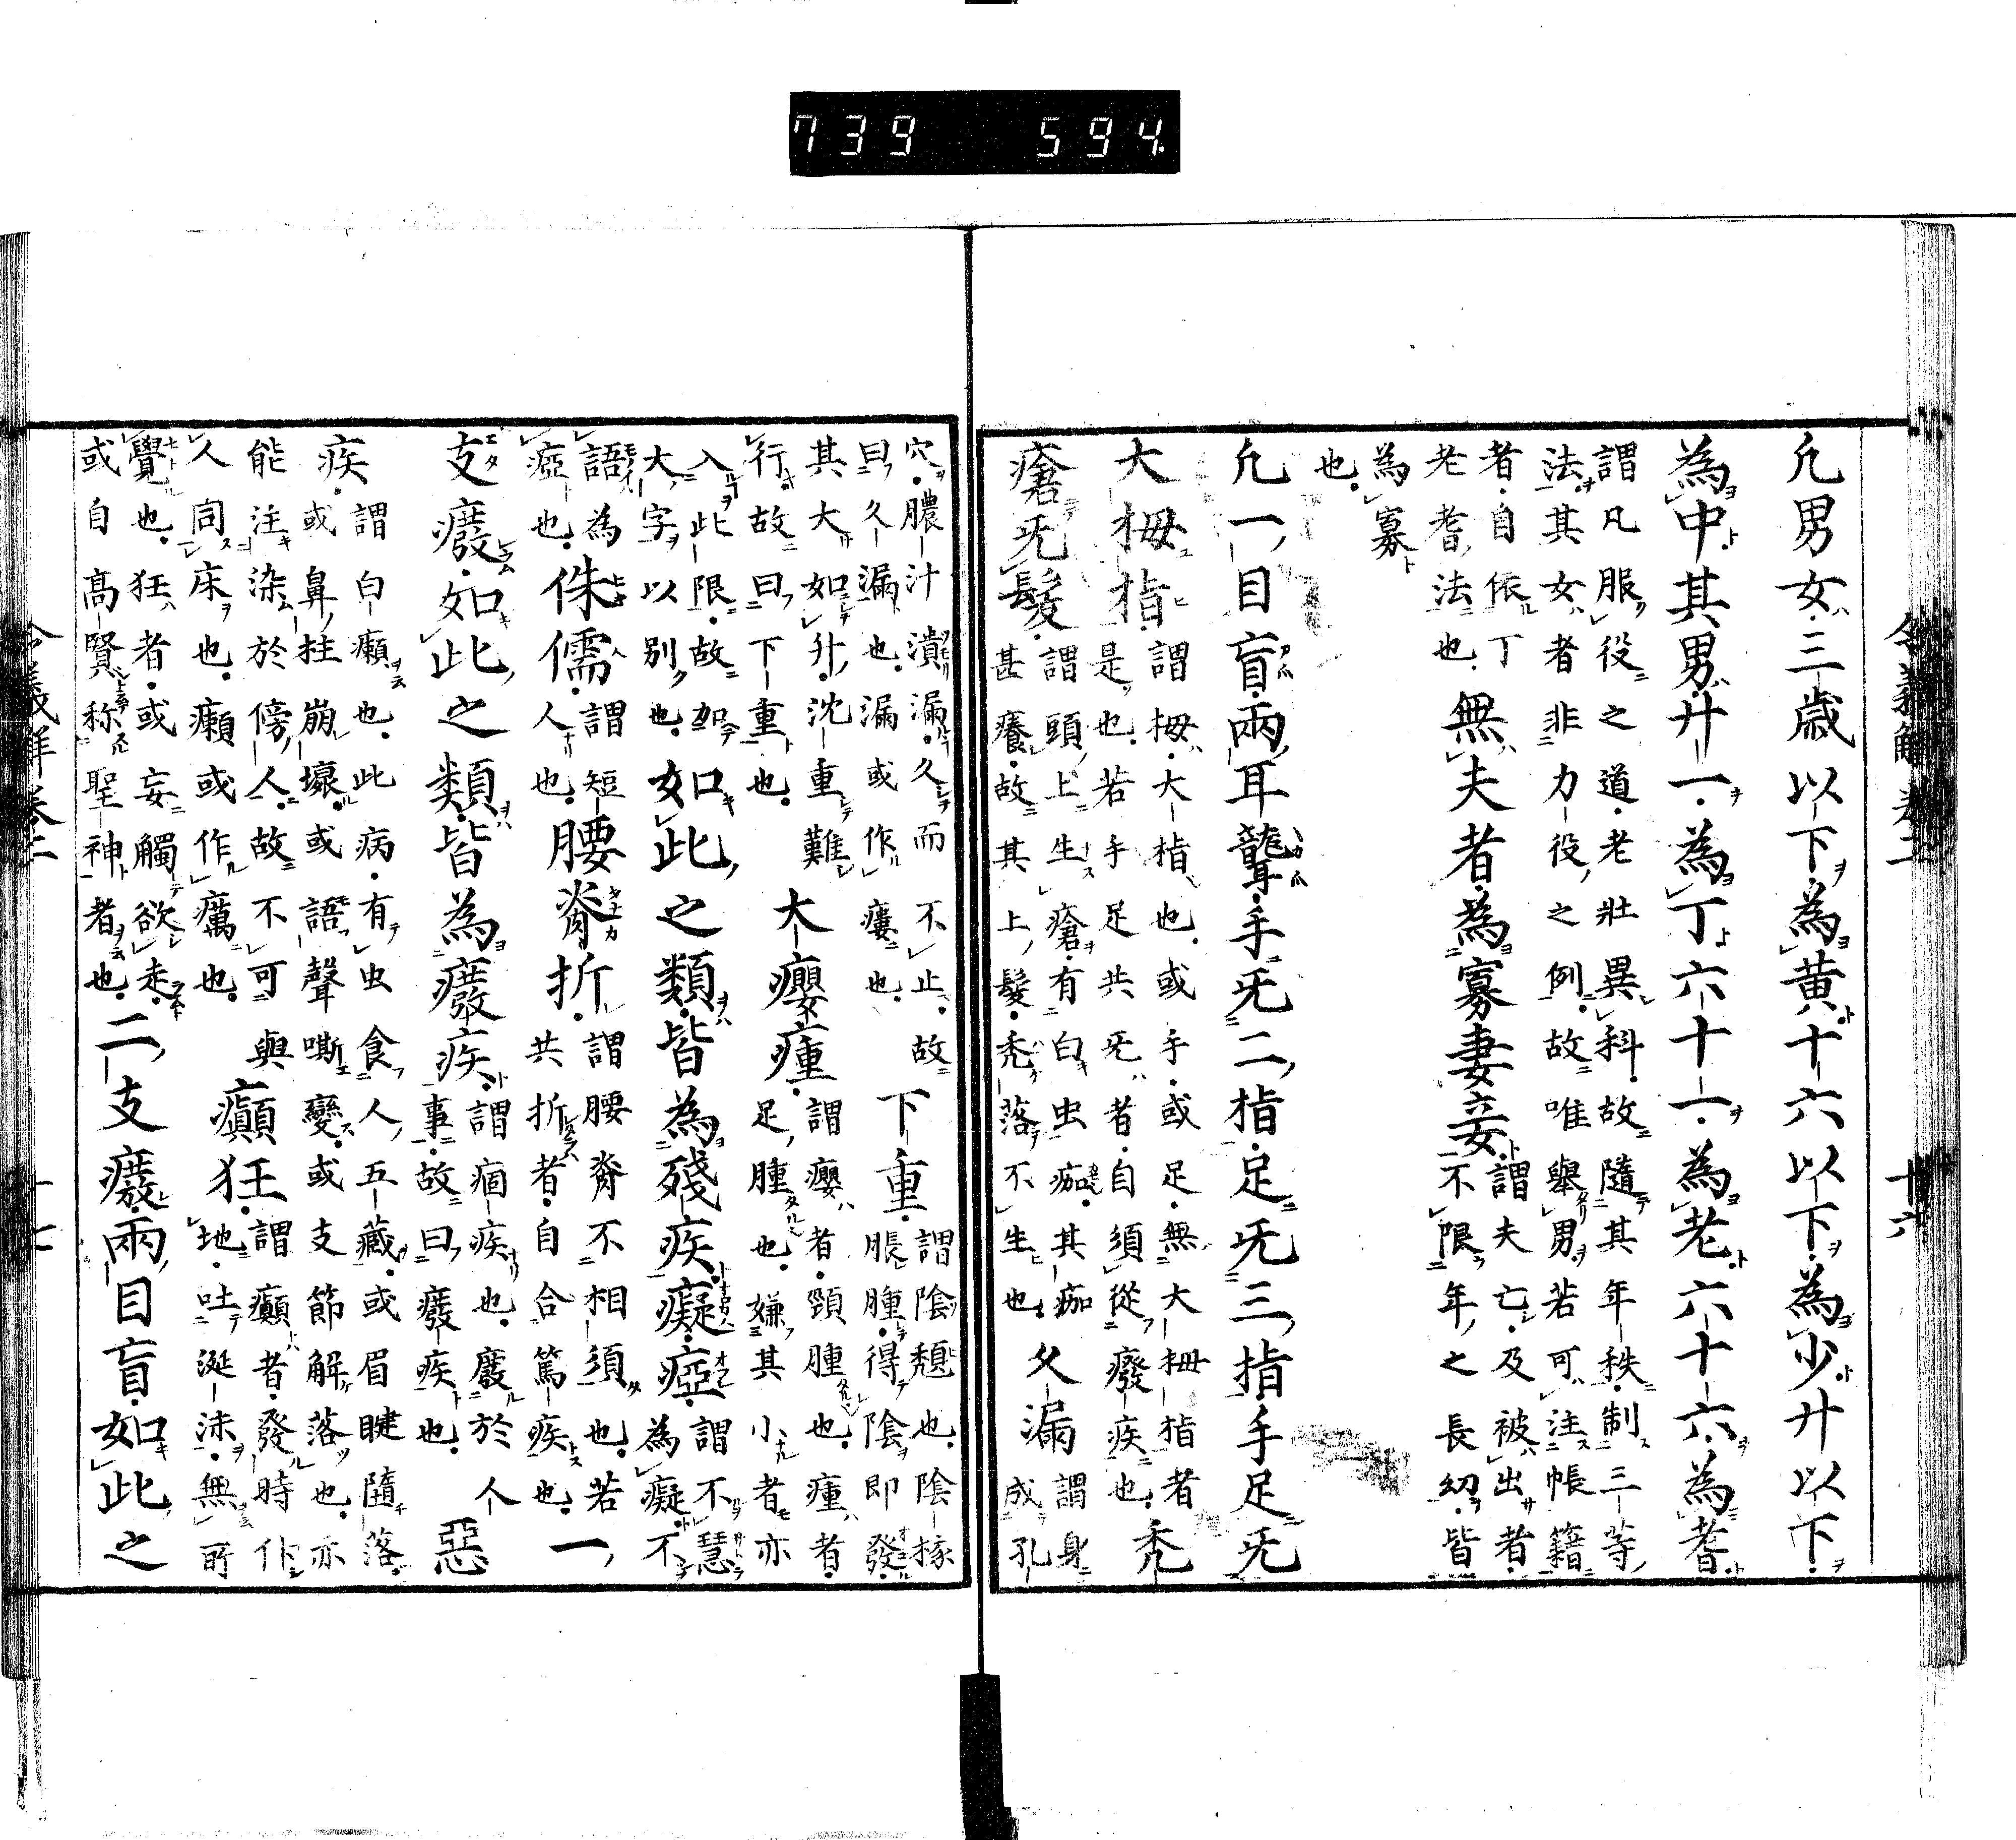 739 594
令義解卷二 十六
凢男女三歳以下為黄十六以下為少廿以下
為中其男廿一為丁六十一為老六十六為耆
謂凡服役之道老壯異科故隨其年秩制三等
法其女者非力役之例故唯舉男若可注帳籍
者自依丁老耆法也
無夫者為寡妻妾
謂夫亡及被出者
不限年之長幼皆
為寡
也
凢一目盲兩耳聾手无二指足无三指手足无
大拇指
謂拇大指也或手或足無大拇指者
是也若手足共无者自須從癈疾也
禿
瘡无髮
謂頭上生瘡有白虫痂其痂
甚癢故其上髮禿落不生也
久漏
謂身
成孔
穴膿汁潰漏久而不止故
曰久漏也漏或作瘻也
下重
謂陰㿗也陰核
脹腫得陰即發
其大如升沈重難
行故曰下重也
大癭瘇
謂癭者頸腫也瘇者
足腫也嫌其小者亦
入此限故加
大字以別也
如此之類皆為殘疾癡瘂
謂不慧
為癡不
語為
瘂也
侏儒
謂短
人也
腰脊折
謂腰脊不相須也若
共折者自合篤疾也
一
支癈如此之類皆為癈疾
謂痼疾也癈於人
事故曰癈疾也
惡
疾
謂白癩也此病有虫食人五藏或眉睫隨落
或鼻柱崩壞或語聲嘶變或支節解落也亦
能注染於傍人故不可與
人同床也癩或作癘也
癲狂
謂癲者發時仆
地吐涎沫無所
覺也狂者或妄觸欲走
或自高賢称聖神者也
二支癈兩目盲如此之